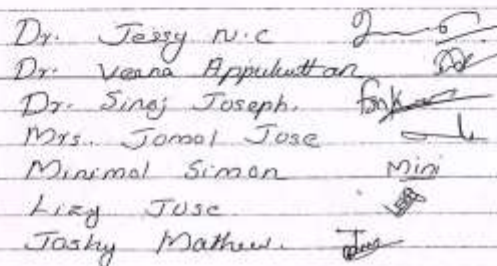 Dr. Jessy N.C
Dr. Veena Appukuttan
Dr. Sinoj Joseph.
Mrs. Jomol Jose
Minimol Simon Mini
Lizy Jose
Joshy Mathew.